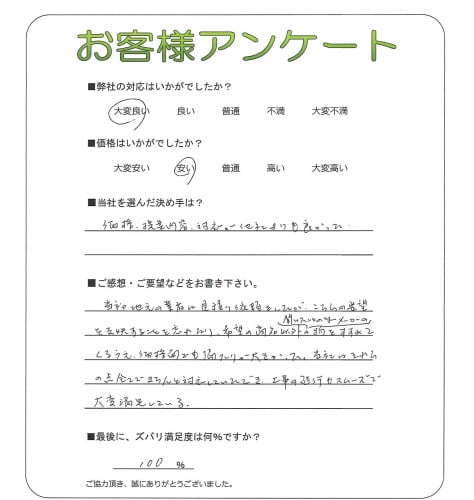 お客様アンケート
■弊社の対応はいかがでしたか？
大変良い 良い 普通 不満 大変不満
■価格はいかがでしたか？
大変安い 安い 普通 高い 大変高い
■当社を選んだ決め手は？
価格、提案内容、対応が他社よりも良かった
■ご感想・ご要望などをお書き下さい。
当初地元の業者に見積り依頼をしたが、こちらの希望
聞いたことのないメーカーの
希望の商品以外の物をすすめて
くるうえ、価格面でも
の点全てきちんと対応していただき、工事の進行もスムーズで
大変満足している。
■最後に、ズバリ満足度は何%ですか？
100 %
ご協力頂き、誠にありがとうございました。